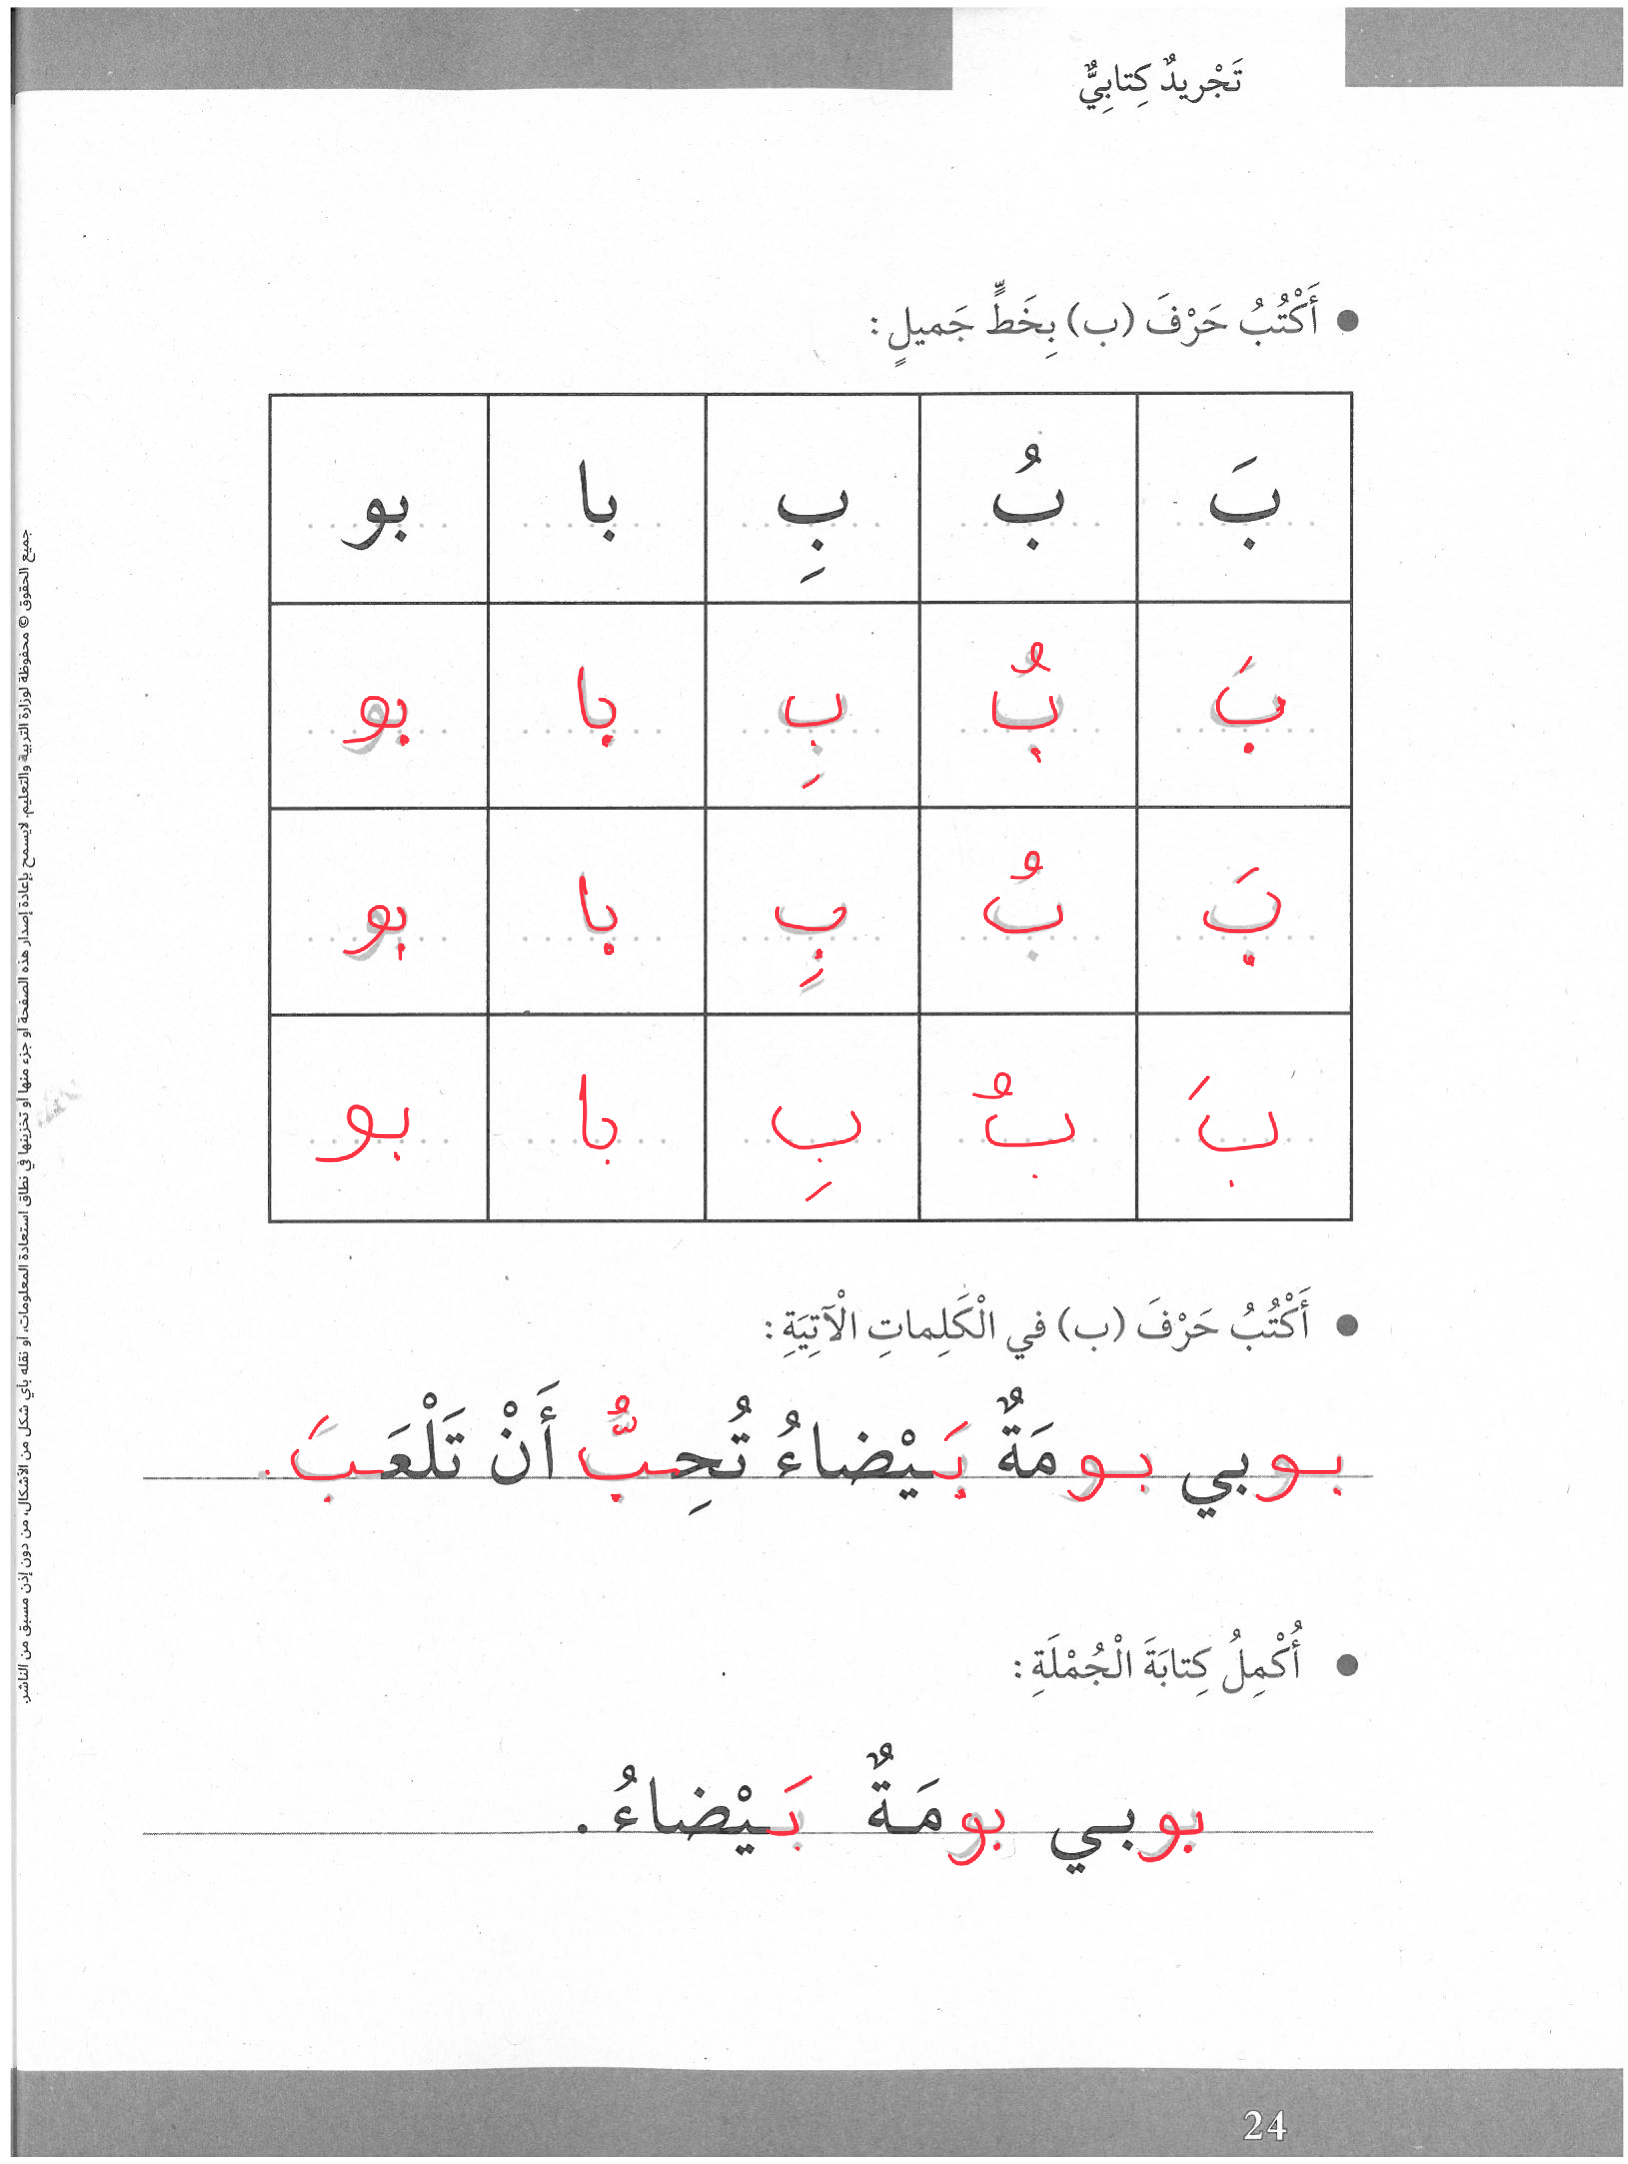 تَجْريدٌ كِتابِيٌّ
● أَكْتُبُ حَرْفَ (ب) بِخَطٍّ جَميلٍ :
بَ بُ بِ با بو
بَ بُ بِ با بو
بَ بُ بِ با بو
بَ بُ بِ با بو
● أَكْتُبُ حَرْفَ (ب) في الْكَلِماتِ الْآتِيَةِ :
بوبي بومَةٌ بَيْضاءُ تُحِبُّ أَنْ تَلْعَبَ .
● أُكْمِلُ كِتابَةَ الْجُمْلَةِ :
بوبي بومَةٌ بَيْضاءُ .
24
جميع الحقوق © محفوظة لوزارة التربية والتعليم. لايسمح بإعادة إصدار هذه الصفحة أو جزء منها أو تخزينها في نطاق استعادة المعلومات، أو نقله بأي شكل من الأشكال، من دون إذن مسبق من الناشر.